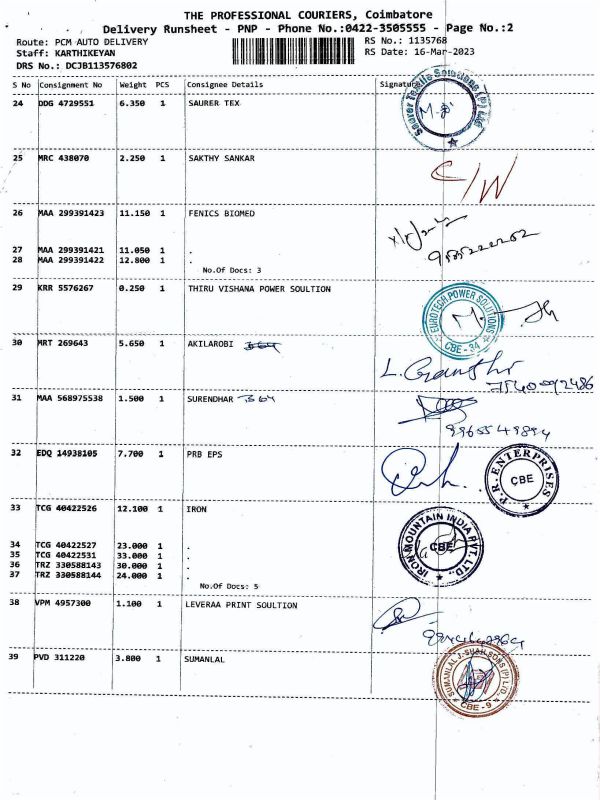 THE PROFESSIONAL COURIERS, Coimbatore
Delivery Runsheet - PNP - Phone No.:0422-3505555 - Page No.:2
Route: PCM AUTO DELIVERY RS No.: 1135768
Staff: KARTHIKEYAN RS Date: 16-Mar-2023
DRS No.: DCJB113576802
S No Consignment No Weight PCS Consignee Details Signature
24 DDG 4729551 6.350 1 SAURER TEX
25 MRC 438070 2.250 1 SAKTHY SANKAR
C/W
26 MAA 299391423 11.150 1 FENICS BIOMED
27 MAA 299391421 11.050 1 .
28 MAA 299391422 12.800 1 .
No.Of Docs: 3
29 KRR 5576267 0.250 1 THIRU VISHANA POWER SOULTION
EUROTECH POWER SOLUTIONS
CBE - 34
30 MRT 269643 5.650 1 AKILAROBI
31 MAA 568975538 1.500 1 SURENDHAR
32 EDQ 14938105 7.700 1 PRB EPS
P.R. ENTERPRISES
CBE
33 TCG 40422526 12.100 1 IRON
IRON MOUNTAIN INDIA PVT. LTD.
CBE
34 TCG 40422527 23.000 1 .
35 TCG 40422531 33.000 1 .
36 TRZ 330588143 30.000 1 .
37 TRZ 330588144 24.000 1 .
No.Of Docs: 5
38 VPM 4957300 1.100 1 LEVERAA PRINT SOULTION
39 PVD 311220 3.800 1 SUMANLAL
SUMANLAL J. SHAH SONS (P) LTD.
CBE - 9